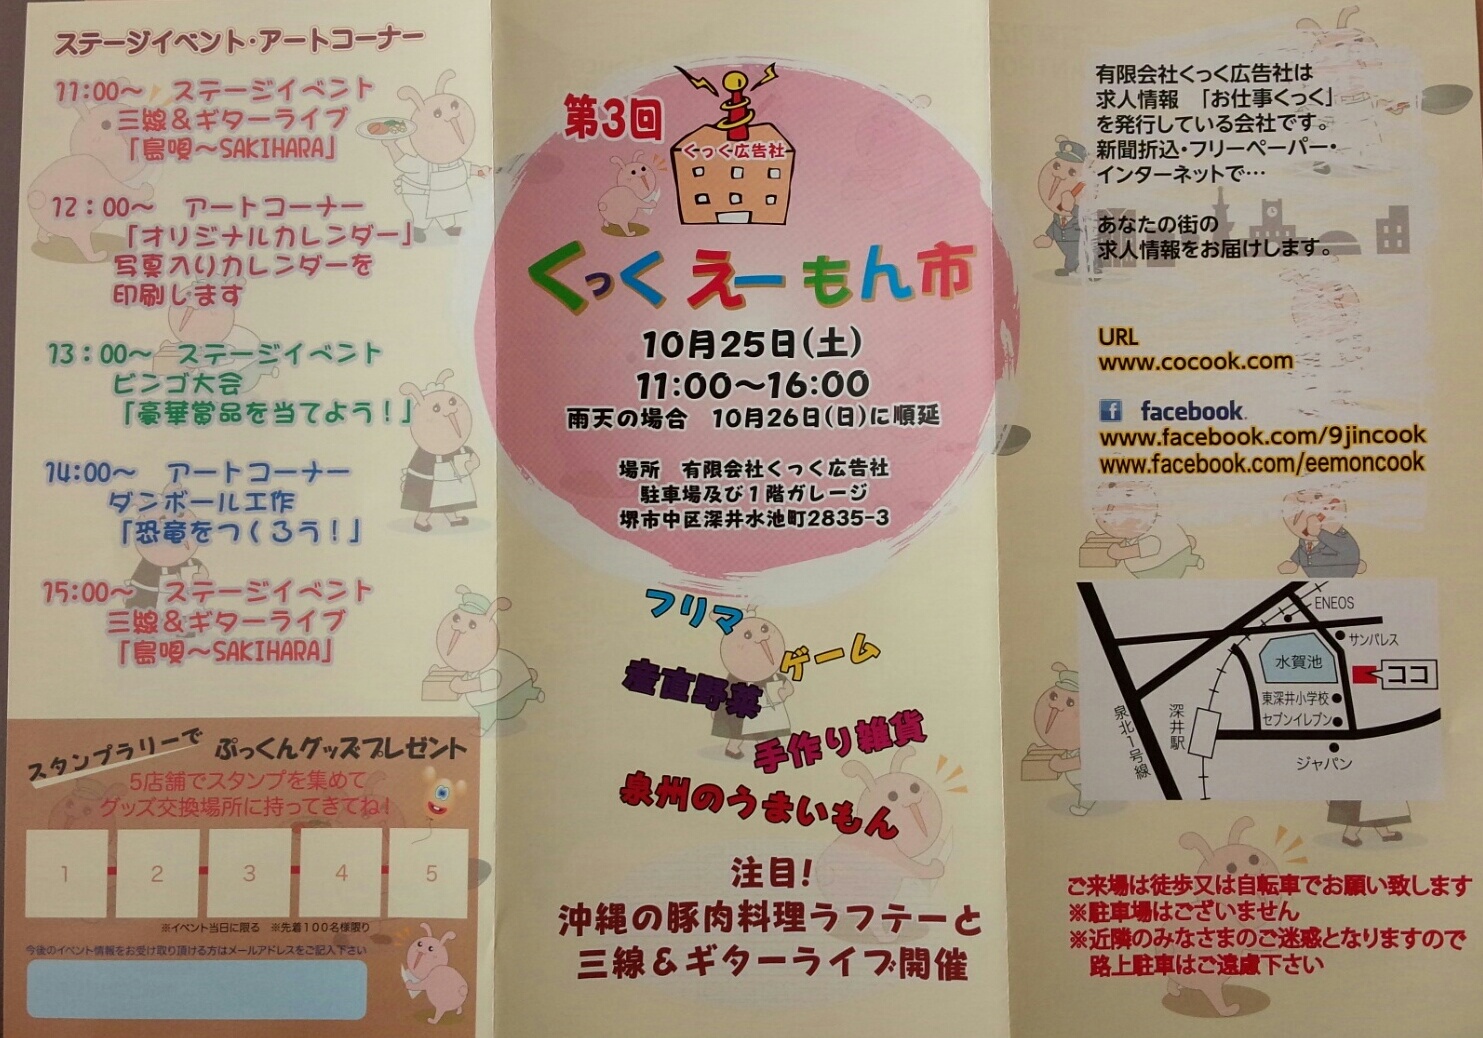 ステージイベント・アートコーナー
11:00～　ステージイベント
三線＆ギターライブ
「島唄～SAKIHARA」
12：00～　アートコーナー
「オリジナルカレンダー」
写真入りカレンダーを
印刷します
13：00～　ステージイベント
ビンゴ大会
「豪華賞品を当てよう！」
14:00～　アートコーナー
ダンボール工作
「恐竜をつくろう！」
15:00～　ステージイベント
三線＆ギターライブ
「島唄～SAKIHARA」
スタンプラリーで　ぷっくんグッズプレゼント
5店舗でスタンプを集めて
グッズ交換場所に持ってきてね！
1　2　3　4　5
※イベント当日に限る　※先着100名様限り
今後のイベント情報をお受け取り頂ける方はメールアドレスをご記入下さい
第3回
くっく広告社
くっく えーもん市
10月25日(土)
11:00～16:00
雨天の場合　10月26日(日)に順延
場所　有限会社くっく広告社
駐車場及び1階ガレージ
堺市中区深井水池町2835-3
フリマ
ゲーム
産直野菜
手作り雑貨
泉州のうまいもん
注目!
沖縄の豚肉料理ラフテーと
三線＆ギターライブ開催
有限会社くっく広告社は
求人情報　「お仕事くっく」
を発行している会社です。
新聞折込・フリーペーパー・
インターネットで…
あなたの街の
求人情報をお届けします。
URL
www.cocook.com
f facebook.
www.facebook.com/9jincook
www.facebook.com/eemoncook
ENEOS
サンパレス
水賀池
ココ
東深井小学校
セブンイレブン
泉北1号線
深井駅
ジャパン
ご来場は徒歩又は自転車でお願い致します
※駐車場はございません
※近隣のみなさまのご迷惑となりますので
路上駐車はご遠慮下さい